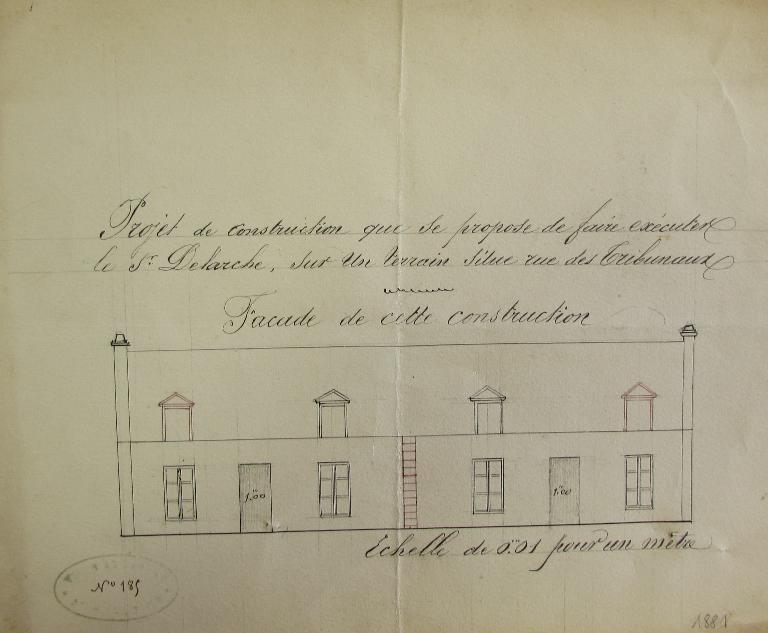 Projet de construction que se propose de faire exécuter
le Sr Delarche, sur un terrain situe rue des Tribunaux
Facade de cette construction
1.m00
1.m00
Echelle de 0.m01 pour un mètre
No 185
1881